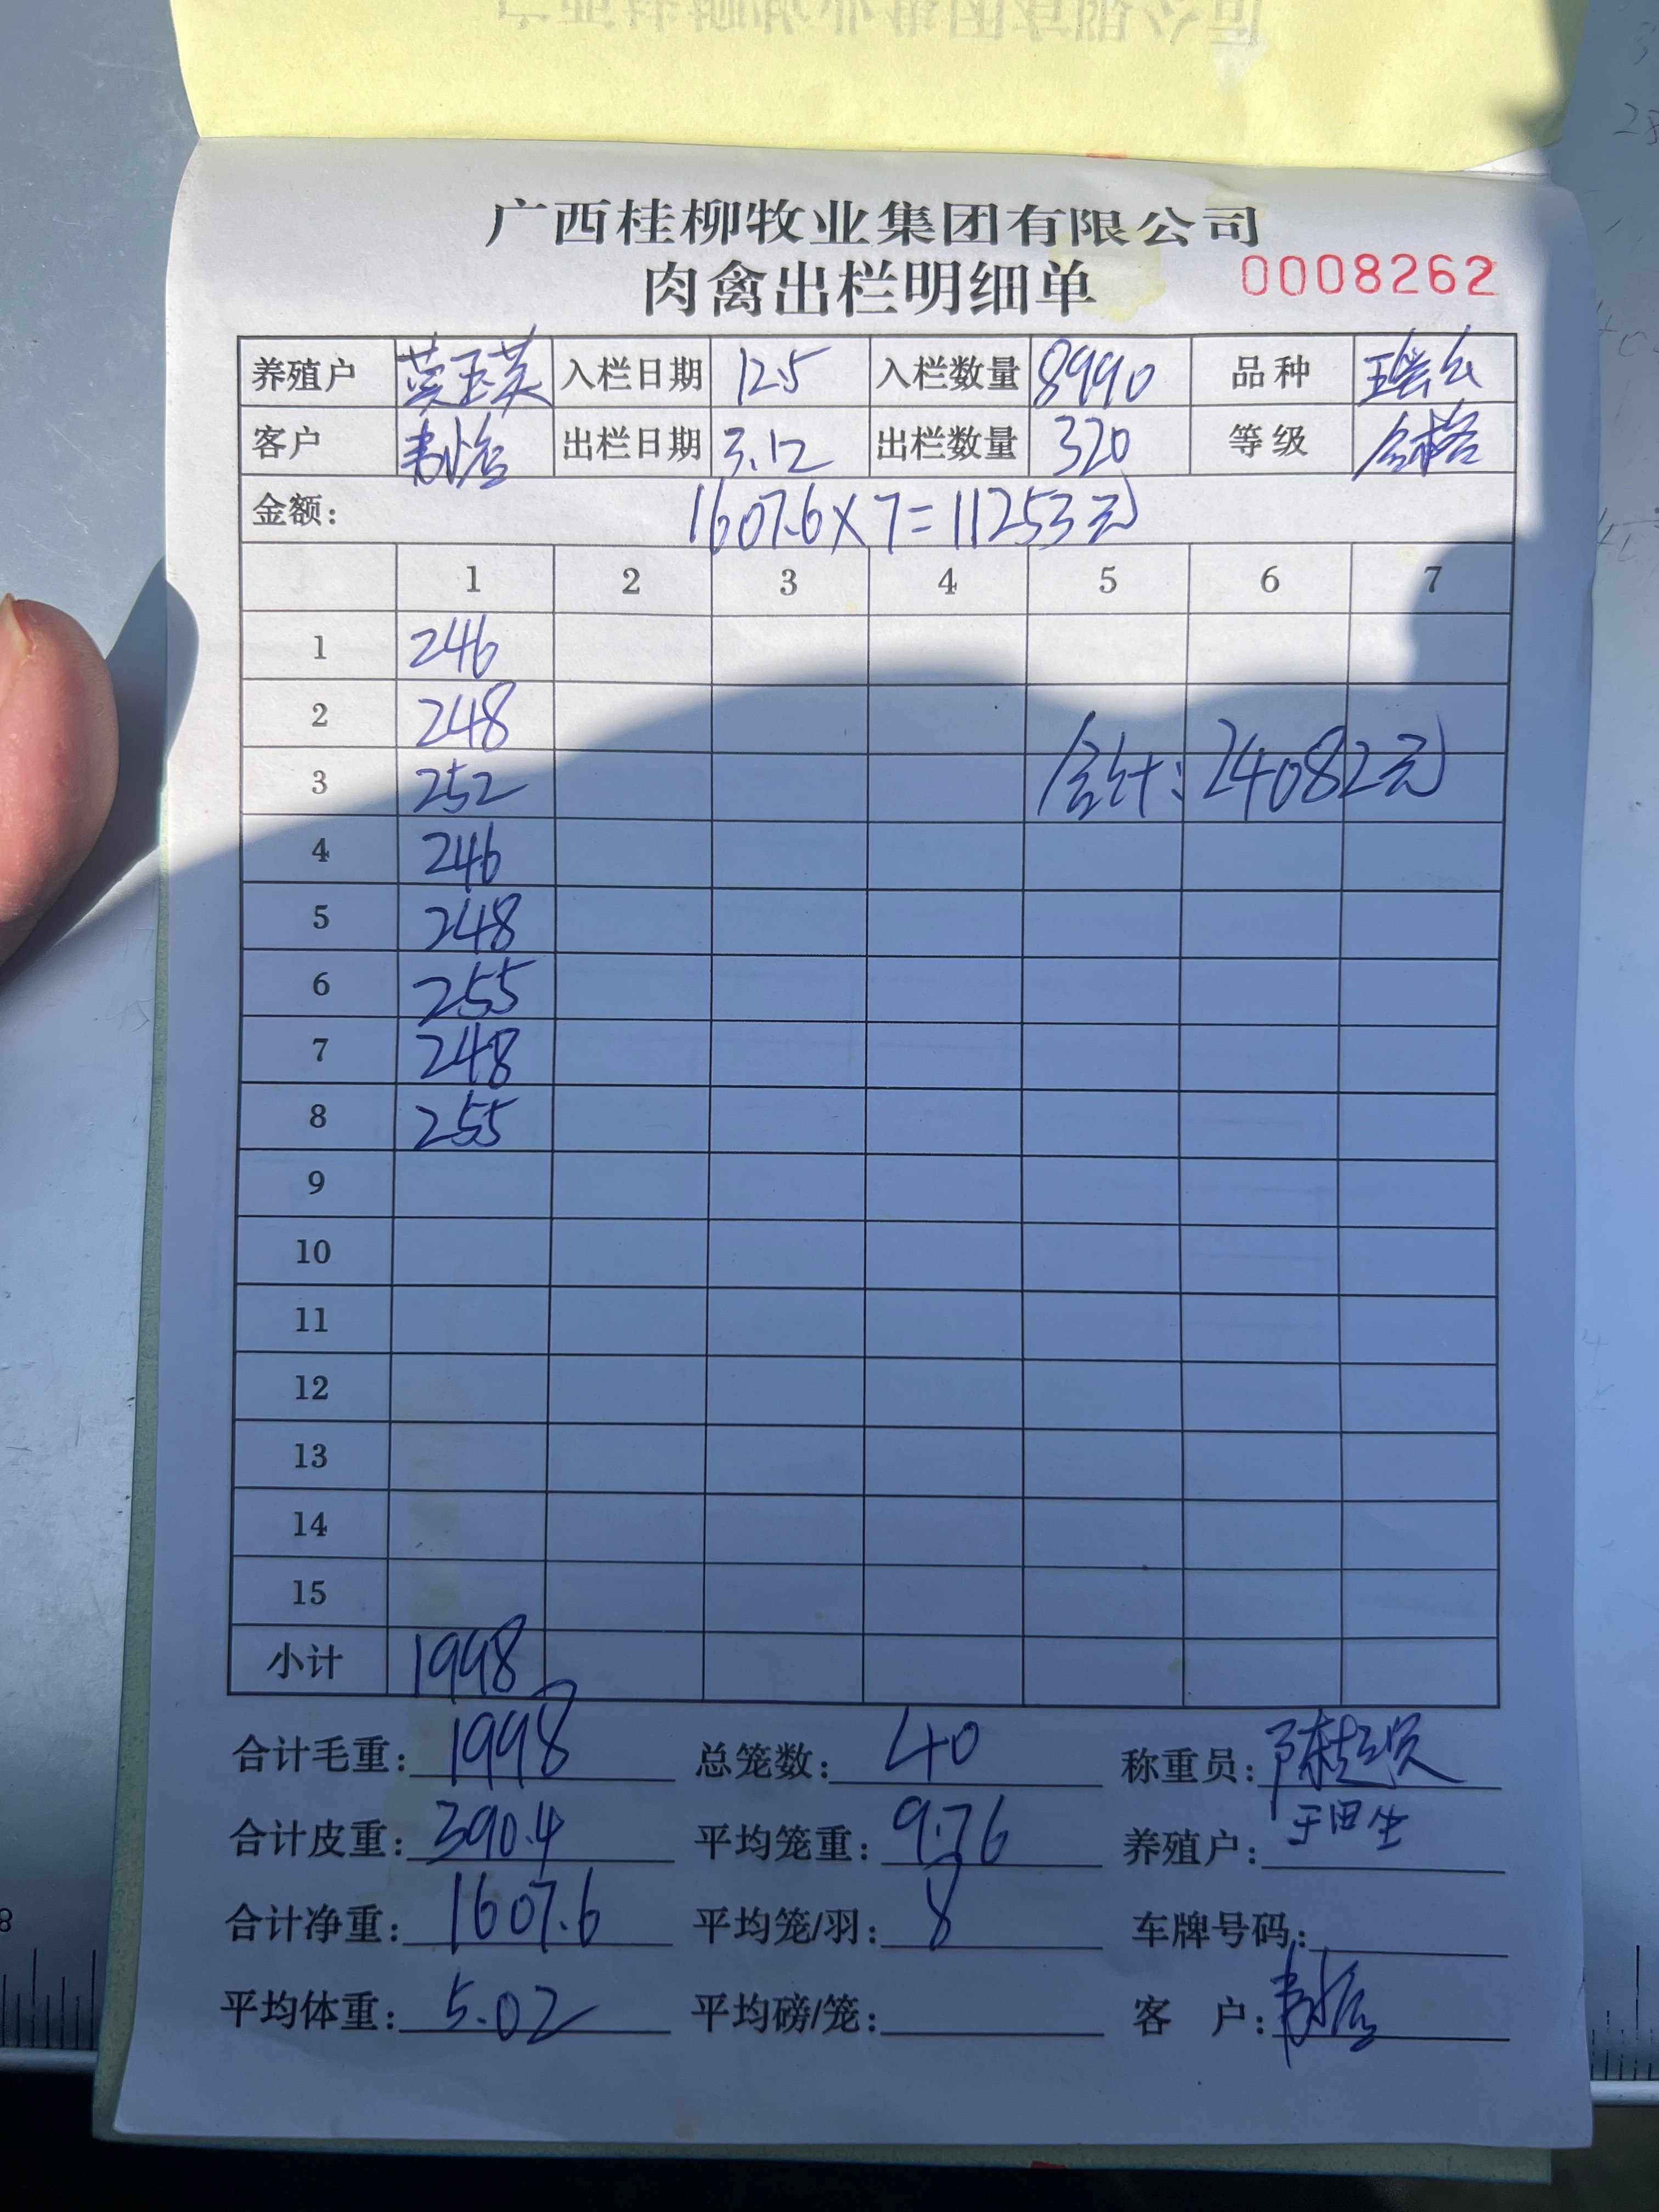 广西桂柳牧业集团有限公司
肉禽出栏明细单 0008262
养殖户 黄玉英 入栏日期 12.5 入栏数量 8990 品种
客户 出栏日期 3.12 出栏数量 320 等级 合格
金额: 1607.6×7=11253元
1 2 3 4 5 6 7
1 246
2 248
3 252 合计:24082元
4 246
5 248
6 255
7 248
8 255
9
10
11
12
13
14
15
小计 1998
合计毛重: 1998 总笼数: 40 称重员:
合计皮重: 390.4 平均笼重: 9.76 养殖户:
合计净重: 1607.6 平均笼/羽: 8 车牌号码:
平均体重: 5.02 平均磅/笼: 客 户: